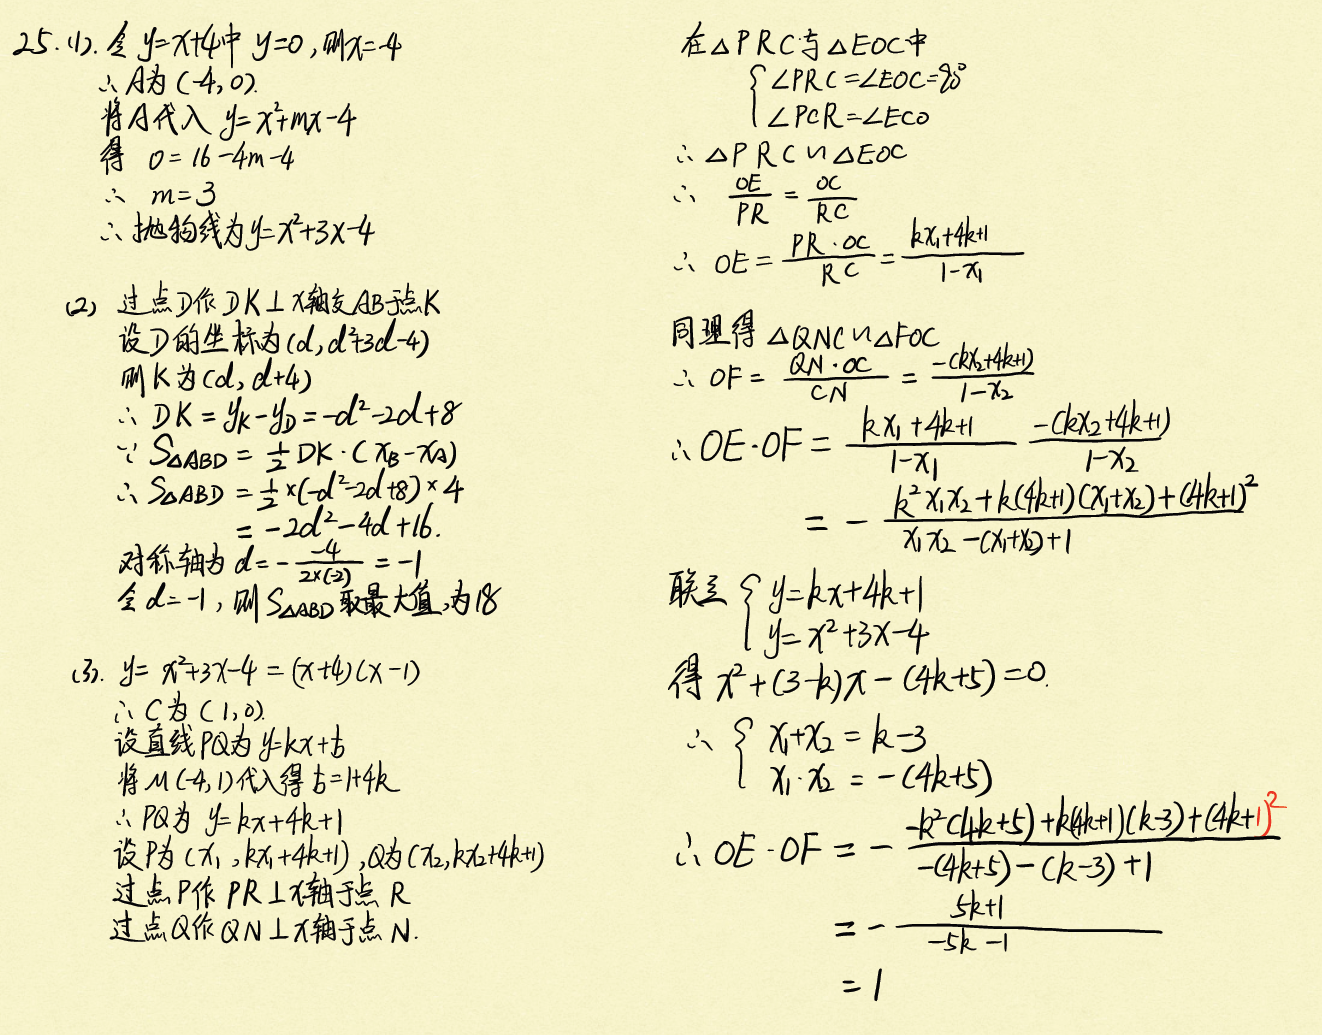 25.(1). 令 y=x+4中 y=0,则x=-4
∴A为(-4,0).
将A代入 y=x²+mx-4
得 0=16-4m-4
∴ m=3
∴抛物线为y=x²+3x-4
(2) 过点D作DK⊥x轴交AB于点K
设D的坐标为(d,d²+3d-4)
则K为(d,d+4)
∴ DK=y_K-y_D=-d²-2d+8
∵ S△ABD=½DK·(x_B-x_A)
∴ S△ABD=½×(-d²-2d+8)×4
=-2d²-4d+16.
对称轴为 d=-\frac{-4}{2×(-2)}=-1
令d=-1,则S△ABD取最大值,为18
(3). y=x²+3x-4=(x+4)(x-1)
∴C为(1,0).
设直线PQ为y=kx+b
将M(-4,1)代入得b=1+4k
∴PQ为 y=kx+4k+1
设P为(x₁,kx₁+4k+1),Q为(x₂,kx₂+4k+1)
过点P作PR⊥x轴于点R
过点Q作QN⊥x轴于点N.
在△PRC与△EOC中
{∠PRC=∠EOC=90°
∠PCR=∠ECO
∴△PRC∽△EOC
∴ \frac{OE}{PR}=\frac{OC}{RC}
∴ OE=\frac{PR·OC}{RC}=\frac{kx₁+4k+1}{1-x₁}
同理得△QNC∽△FOC
∴ OF=\frac{QN·OC}{CN}=\frac{-(kx₂+4k+1)}{1-x₂}
∴OE·OF=\frac{kx₁+4k+1}{1-x₁} \frac{-(kx₂+4k+1)}{1-x₂}
=-\frac{k²x₁x₂+k(4k+1)(x₁+x₂)+(4k+1)²}{x₁x₂-(x₁+x₂)+1}
联立{y=kx+4k+1
y=x²+3x-4
得 x²+(3-k)x-(4k+5)=0.
∴{x₁+x₂=k-3
x₁·x₂=-(4k+5)
∴OE·OF=-\frac{-k²(4k+5)+k(4k+1)(k-3)+(4k+1)²}{-(4k+5)-(k-3)+1}
=-\frac{5k+1}{-5k-1}
=1